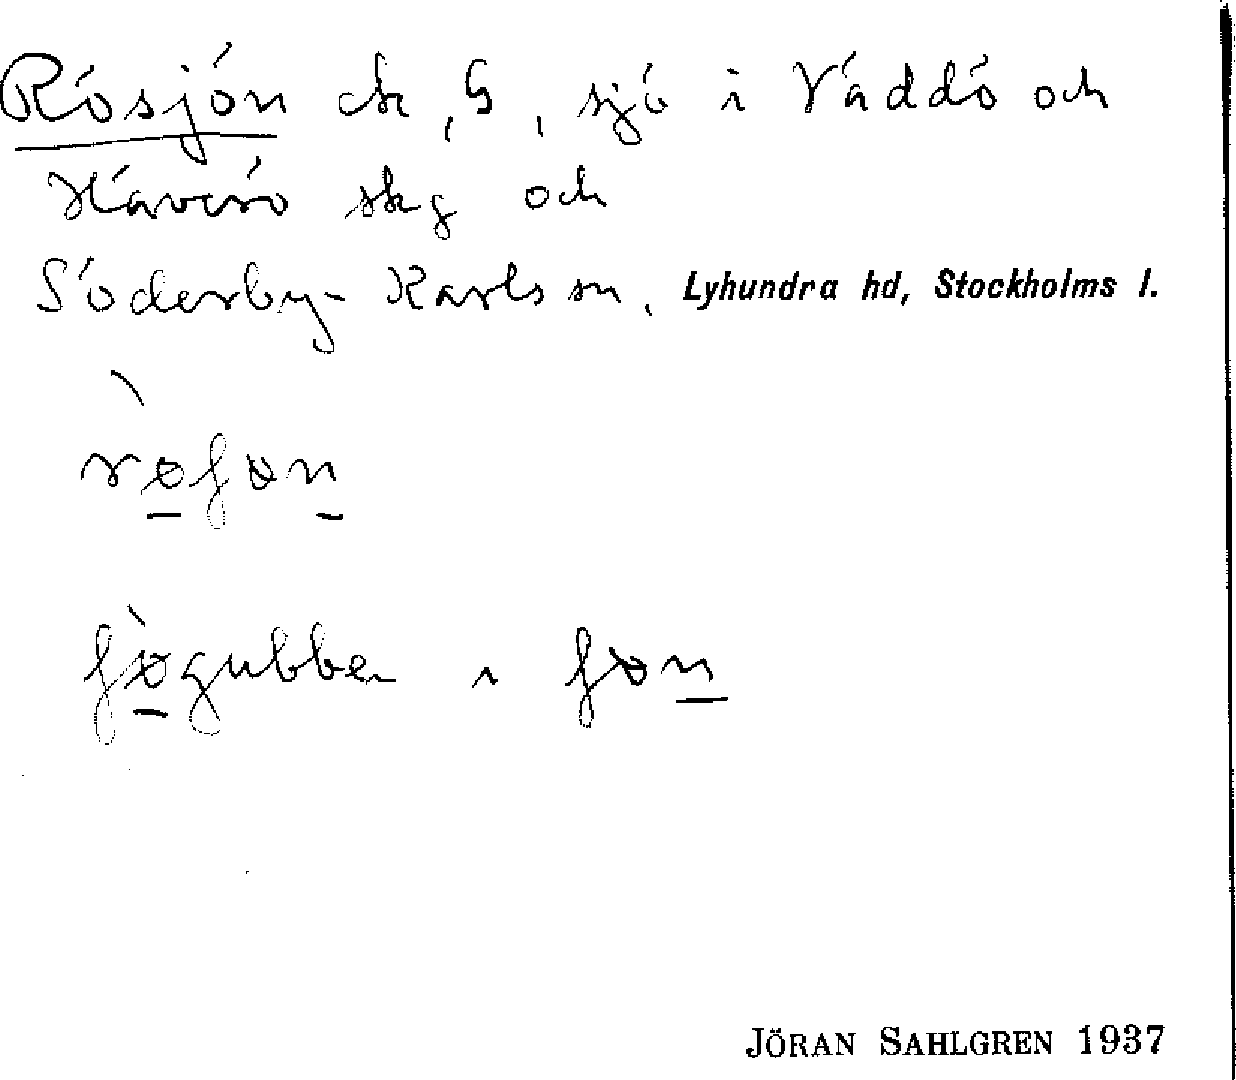 Rösjön ek, G, sjö i Väddö och
Häverö skg och
Söderby-Karls sn, Lyhundra hd, Stockholms l.
røʃøn
ʃøgubben i ʃøn
JÖRAN SAHLGREN 1937